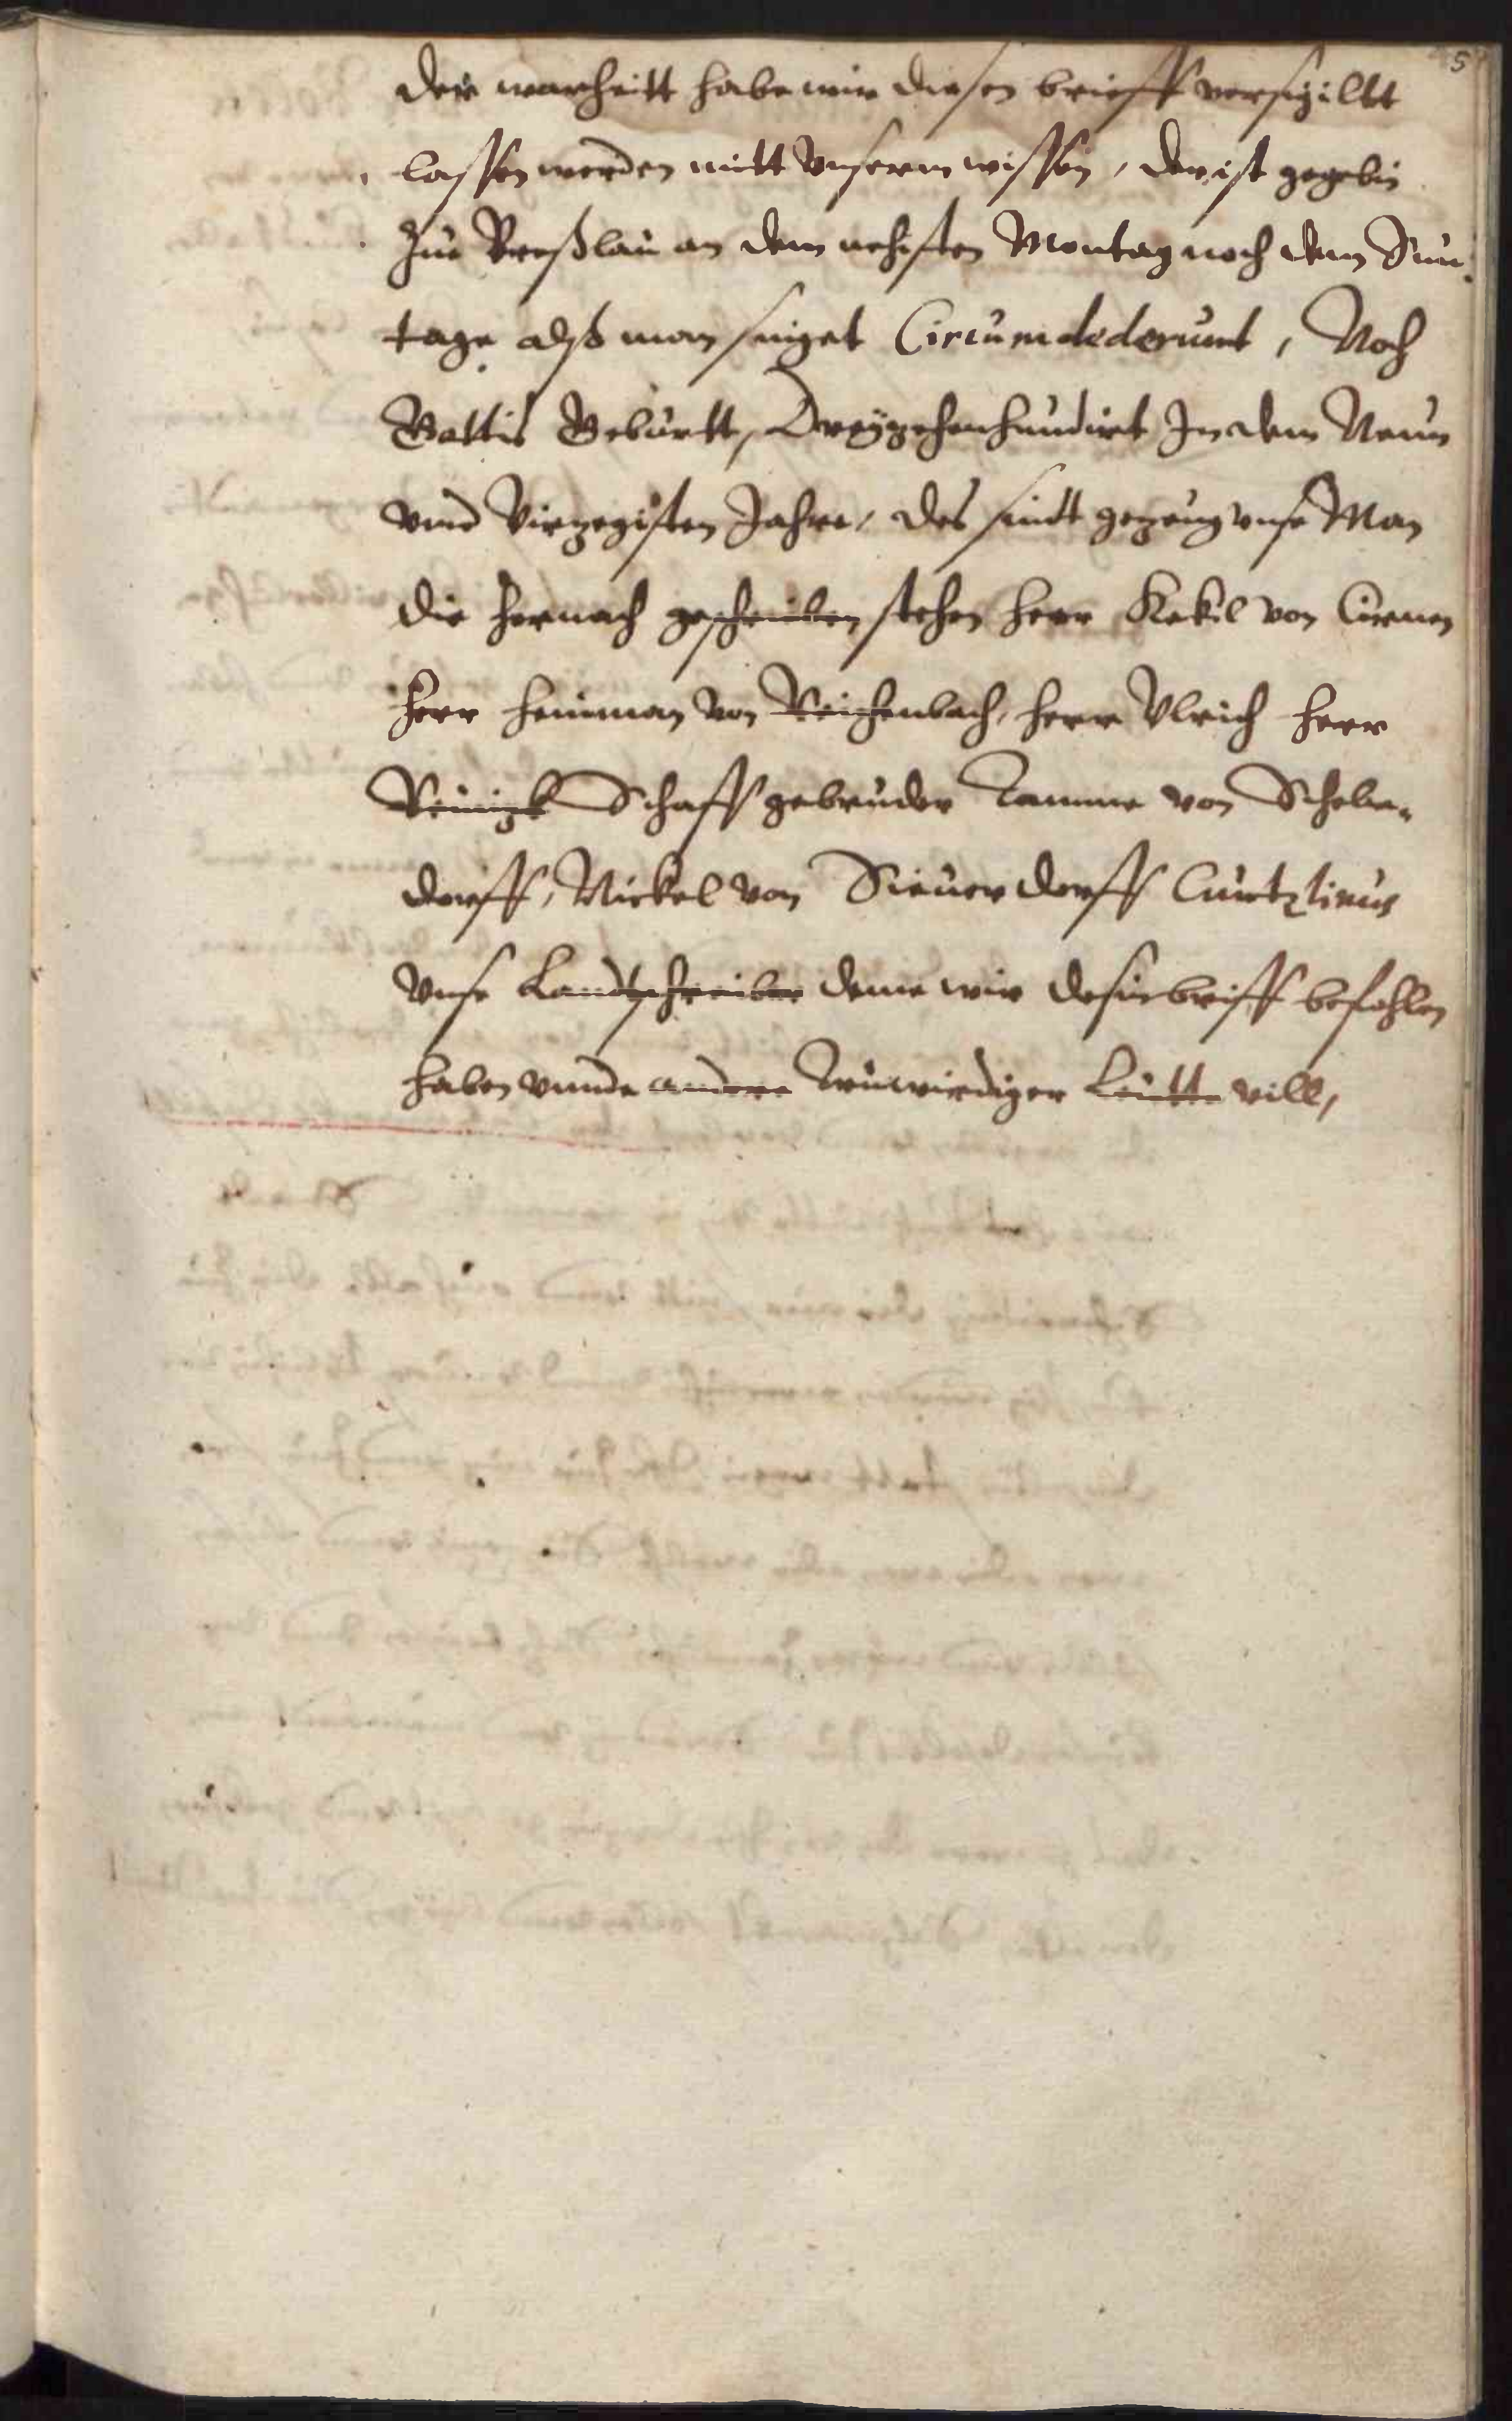 5
der warheitt habe wir diesen brieff versigillt
lassen werden mitt Vnserm wissen, der ist gegebin
Zue Breßlau an dem nehisten Montag noch dem Sun¬
tage alß man singet Circumdederunt, Noch
Gottis Geburtt, Dreyzehenhundirt In dem Neun
vnnd Virzegisten Jahre, des sindt gezeug vnse Man
die hernach geschriben stehen herr Kekil von Cirnen
herr heinman von Reichenbach, herr Vlrich herr
Reinizk Schaff gebruder Tamme von Schelen¬
dorff, Nickel von Sieuerdorff Cuntzlinus
Vnse Landtschreiber deme wir desin briff befohlen
haben vnnde andere Truwirdiger Leutte vill,